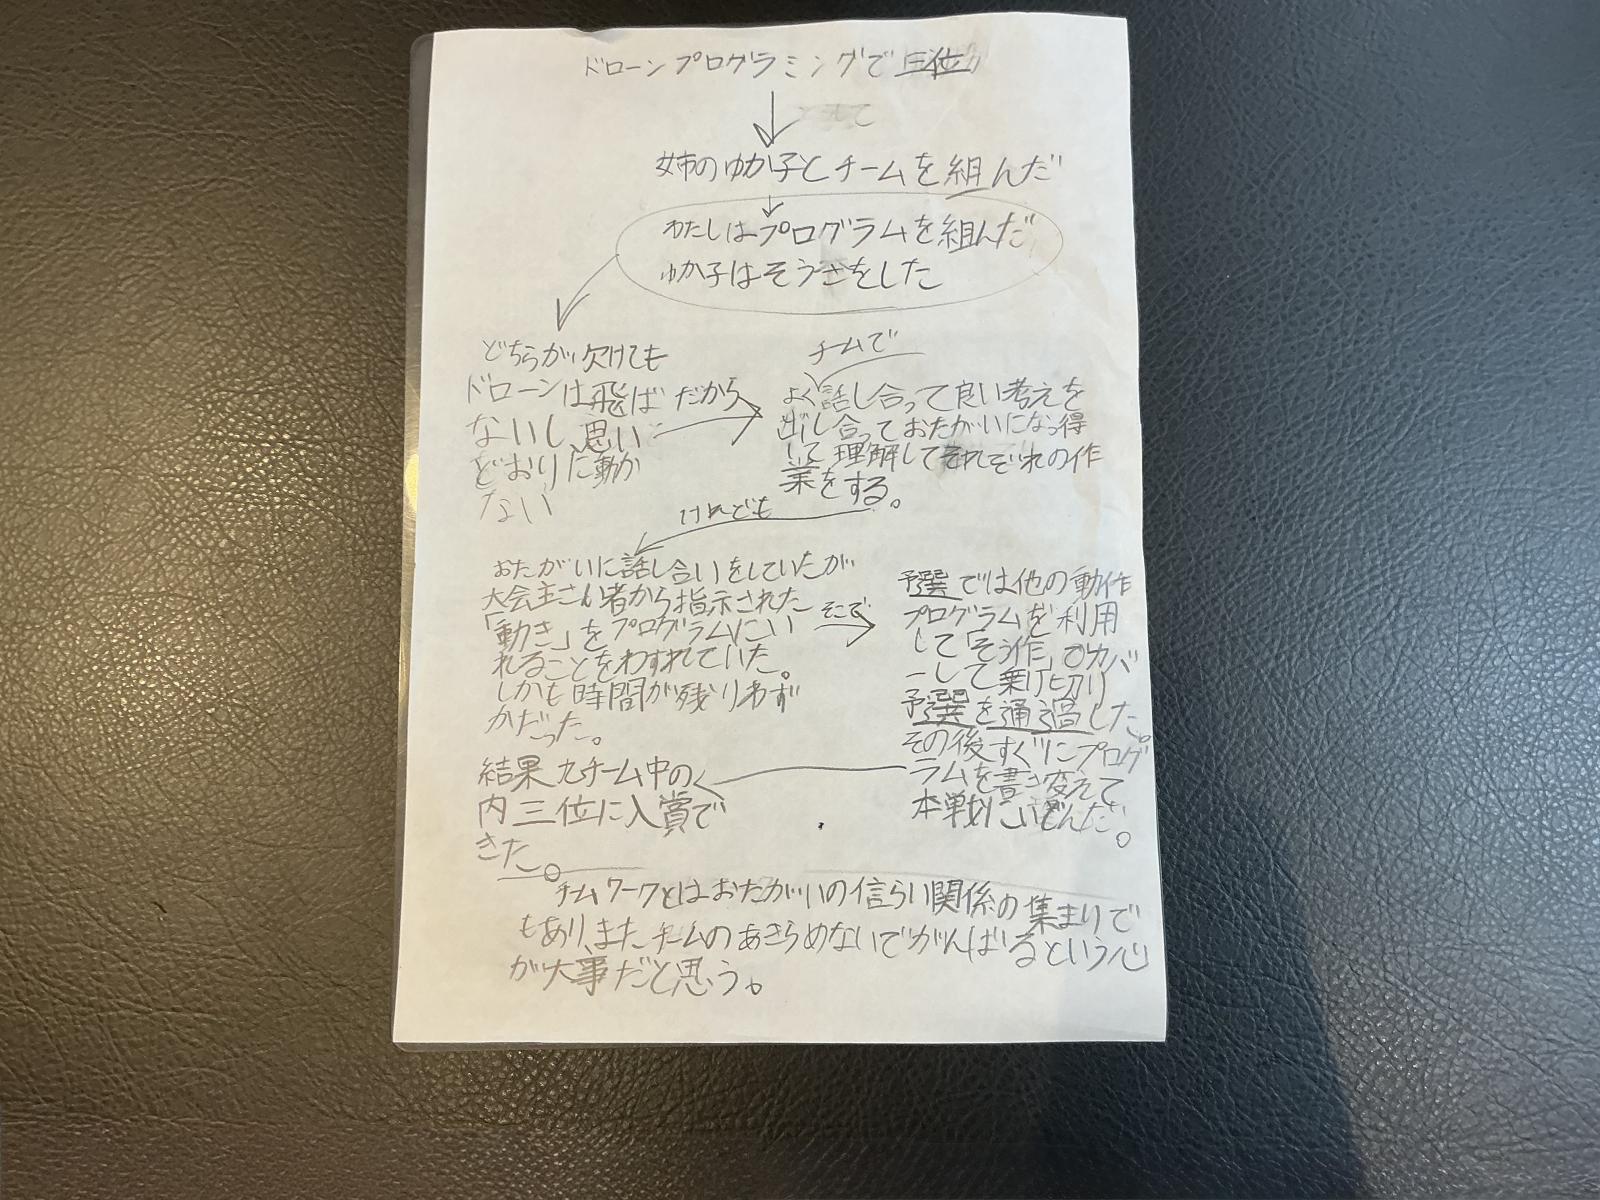 ドローンプログラミングで三位
姉のゆか子とチームを組んだ
わたしはプログラムを組んだ
ゆか子はそうさをした
どちらが欠けても
ドローンは飛ば
ないし、思い
どおりに動か
ない
だから
チームで
よく話し合って良い考えを
出し合っておたがいになっ得
して理解してそれぞれの作
業をする。
けれども
おたがいに話し合いをしていたが
大会主さい者から指示された
「動き」をプログラムにい
れることをわすれていた。
しかも時間が残りわず
かだった。
そこで
予選では他の動作
プログラムを利用
して「そう作」でカバ
ーして乗り切り
予選を通過した。
その後すぐにプログ
ラムを書き変えて
本戦にいどんだ。
結果九チーム中の
内三位に入賞で
きた。
チームワークとはおたがいの信らい関係の集まりで
もあり、またチームのあきらめないでがんばるという心
が大事だと思う。